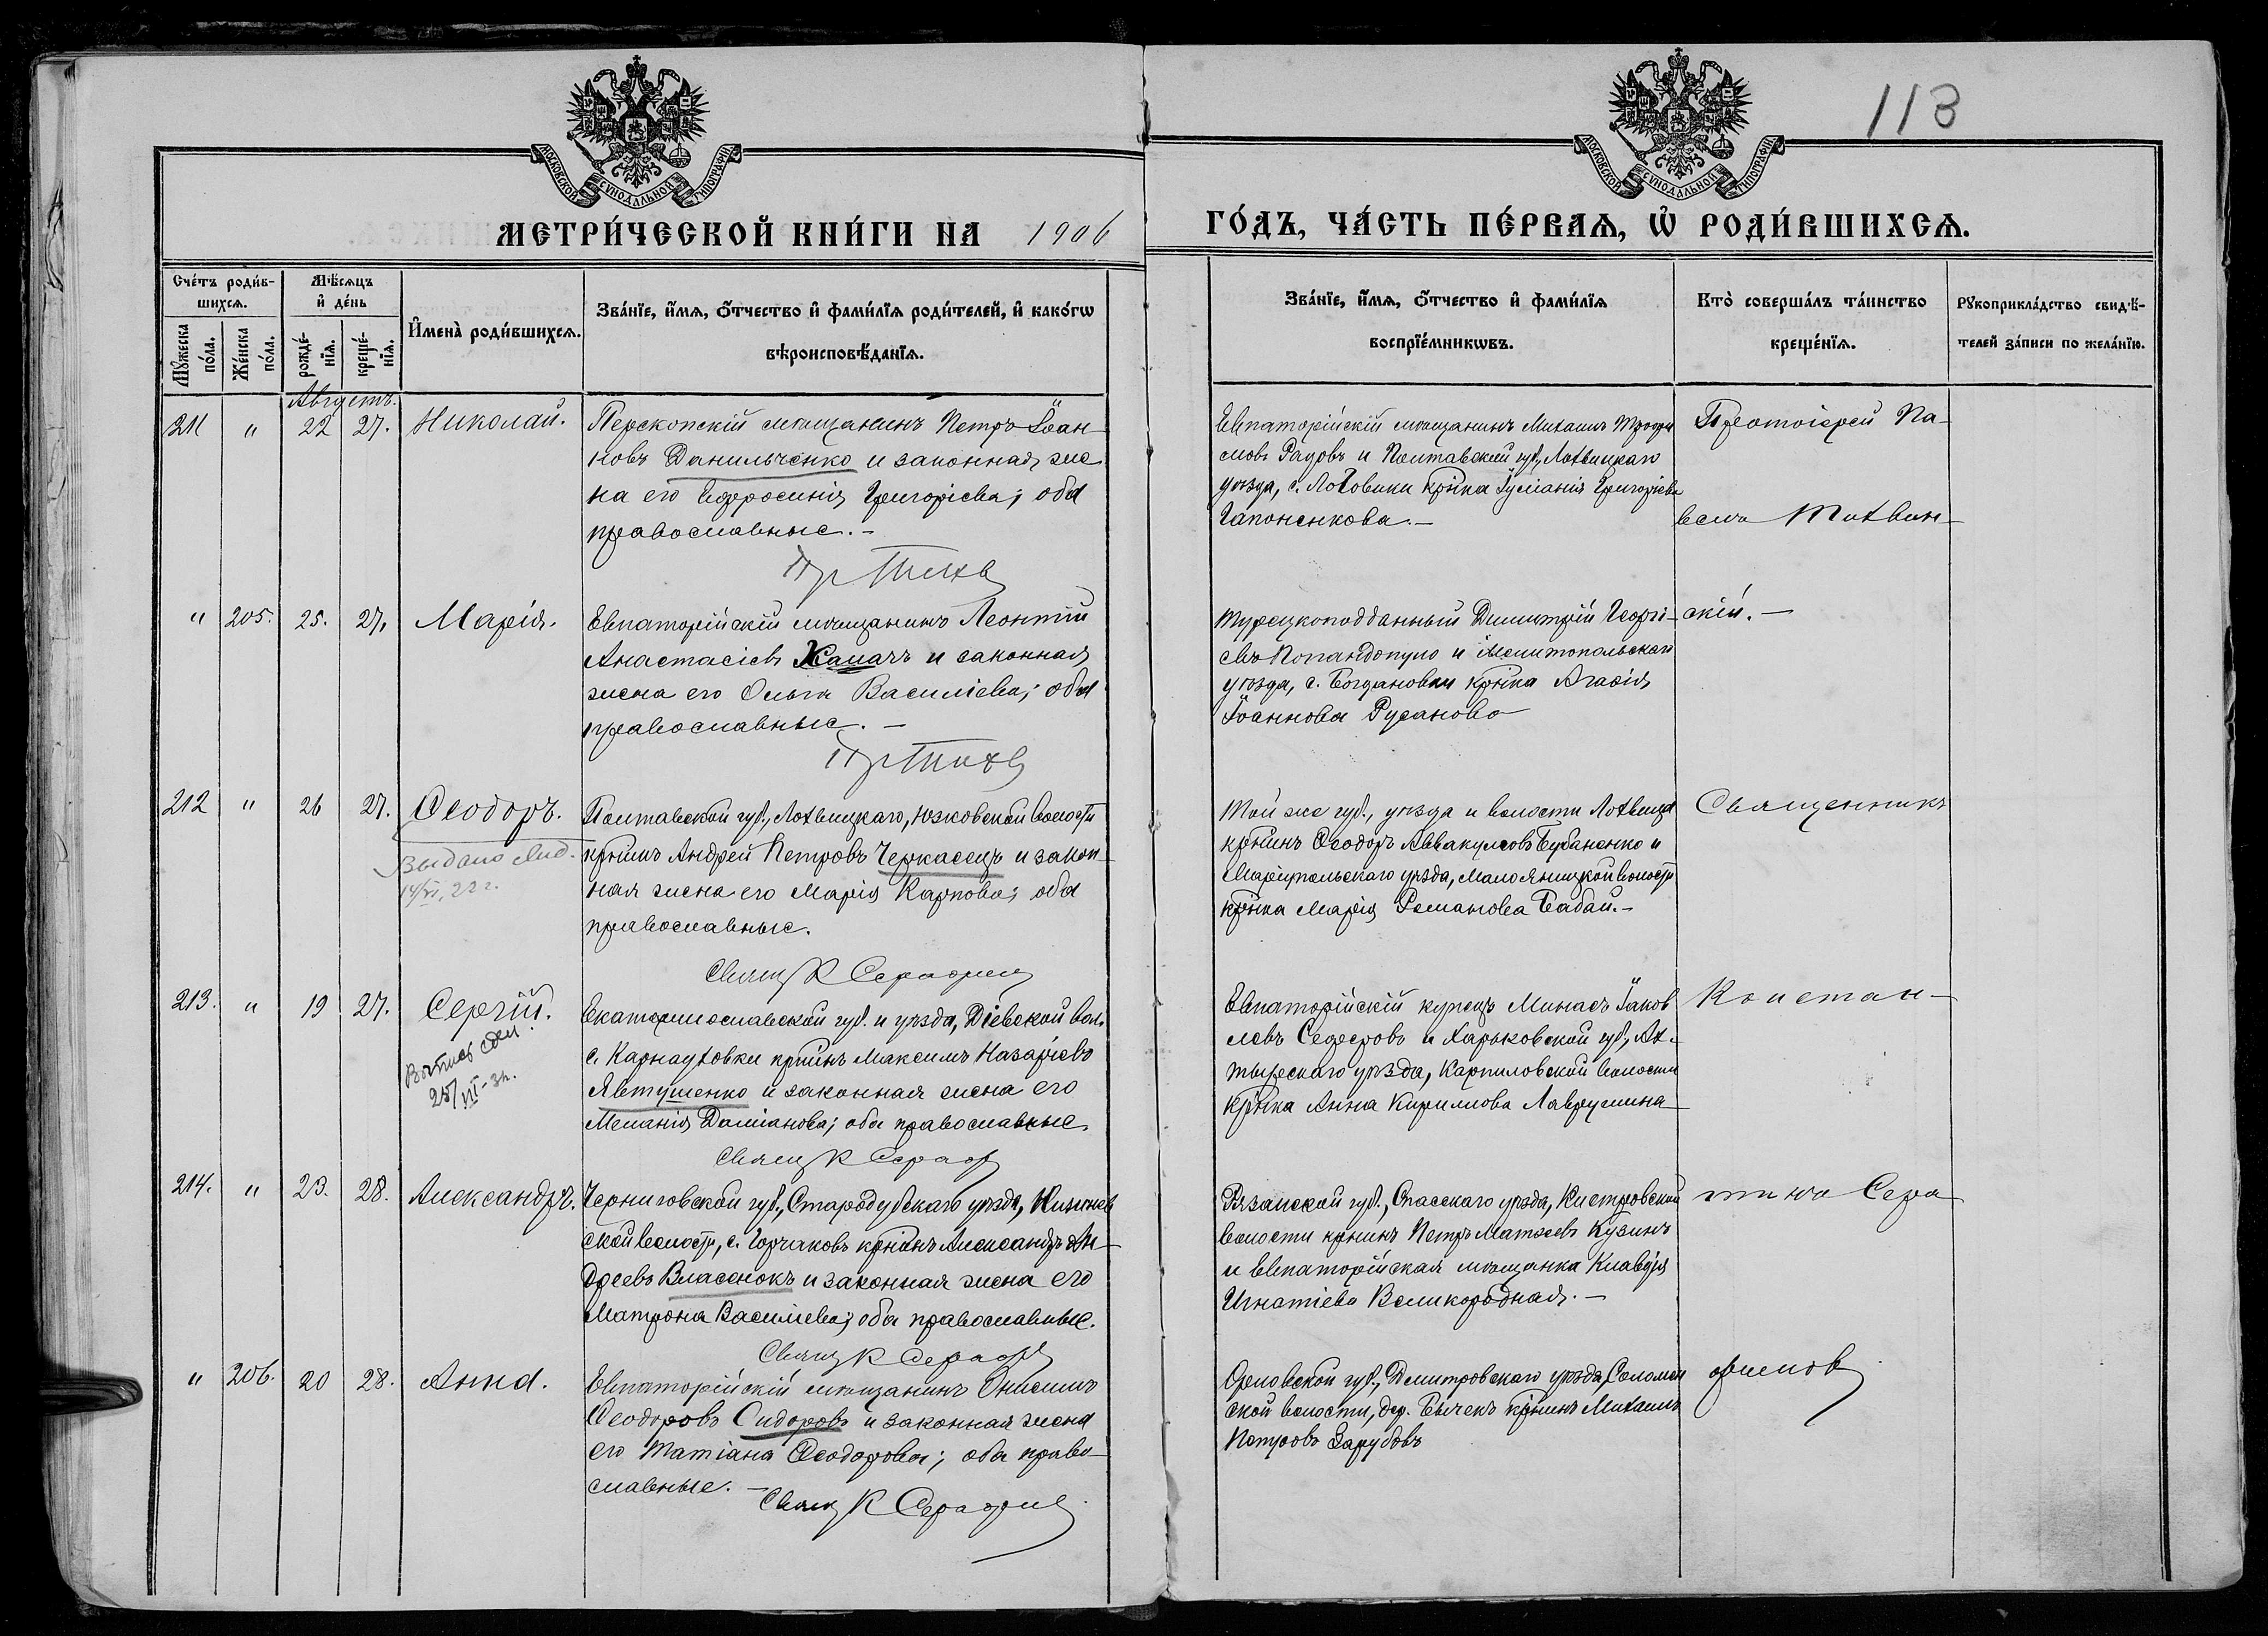 113
МОСКОВСКОЙ СѴНОДАЛЬНОЙ ТИПОГРАФІИ
МОСКОВСКОЙ СѴНОДАЛЬНОЙ ТИПОГРАФІИ
МЕТРИ́ЧЕСКОЙ КНИ́ГИ НА 1906
ГО́ДЪ, ЧА́СТЬ ПЕ́РВАѦ, Ѡ҆ РОДИ́ВШИХСѦ.
Сче́тъ роди́в-
шихсѧ.
Мꙋ́жеска
по́ла.
Же́нска
по́ла.
Мѣ́сѧцъ
и҆ де́нь
рожде́-
нїѧ.
креще́-
нїѧ.
И҆мена̀ роди́вшихсѧ.
Зва́нїе, и҆́мѧ, ѻ҆́тчество и҆ фамѝлїѧ роди́телей, и҆ како́гѡ
вѣроисповѣ́данїѧ.
Зва́нїе, и҆́мѧ, ѻ҆́тчество и҆ фамѝлїѧ
воспрїе́мникѡвъ.
Кто̀ соверша́лъ та́инство
креще́нїѧ.
Рꙋкоприкла́дство свидѣ́-
телей за́писи по жела́нїю.
Августъ.
211 " 22 27. Николай.
Перекопскій мѣщанинъ Петръ Іоан-
новъ Данильченко и законная же-
на его Евфросинія Григоріева; оба
православные.-
Пр Тихв
Евпаторійскій мѣщанинъ Михаилъ Трофи
мовъ Радовъ и Полтавской губ., Лохвицкаго
уѣзда, с. Лоховики кр-нка Іуліанія Григоріева
Гапоненкова.-
Протоіерей Па-
велъ Тихвин-
" 205. 25. 27. Марія.
Евпаторійскій мѣщанинъ Леонтій
Анастасіевъ Хамачъ и законная
жена его Ольга Василіева; оба
православные.-
Пр Тихв
Турецкоподданный Димитрій Георгі-
евъ Попандопуло и Мелитопольскаго
уѣзда, с. Богдановки кр-нка Агафія
Іоаннова Русаново
скій.-
212 " 26 27. Ѳеодоръ.
Выдано
14/VI, 22 г.
Полтавской губ., Лохвицкаго, Юсковской волости
кр-нинъ Андрей Петровъ Черкасецъ и закон-
ная жена его Марія Карпова; оба
православные.
Свящ К Серафим
Той же губ., уѣзда и волости Лохвица
кр-нинъ Ѳеодоръ Аввакумовъ Бубаненко и
Маріупольскаго уѣзда, Мало-Яницкой волости
кр-нка Марія Романова Бабай.-
Священникъ
213. " 19 27. Сергій.
Выпись
25/VII-3
Екатеринославской губ. и уѣзда, Діевской вол.
с. Карнауховки кр-нинъ Максимъ Назаріевъ
Явтушенко и законная жена его
Меланія Даміанова; оба православные.
Свящ К Сераф
Евпаторійскій купецъ Минасъ Іаков
левъ Сеферовъ и Харьковской губ., Ах-
тырскаго уѣзда, Карпиловской волости
кр-нка Анна Кириллова Лаврушина
Констан-
214. " 23. 28. Александръ.
Черниговской губ., Стародубскаго уѣзда,
ской волости, с. Горчаковъ кр-нинъ Александръ Ан-
дреевъ Власенокъ и законная жена его
Матрона Василіева; оба православные.
Свящ К Сераф
Рязанской губ., Спасскаго уѣзда, Кистровской
волости кр-нинъ Петръ Матѳеевъ Кузинъ
и Евпаторійская мѣщанка Клавдія
Игнатіева Великородная.-
тинъ Сера-
" 206. 20 28. Анна.
Евпаторійскій мѣщанинъ Онисимъ
Ѳеодоровъ Сидоровъ и законная жена
его Татіана Ѳеодорова; оба право-
славные.-
Свящ К Серафим
Орловской губ., Дмитровскаго уѣзда, Соломин
ской волости, дер. Бычекъ кр-нинъ Михаилъ
Петровъ Зарубовъ
фимовъ